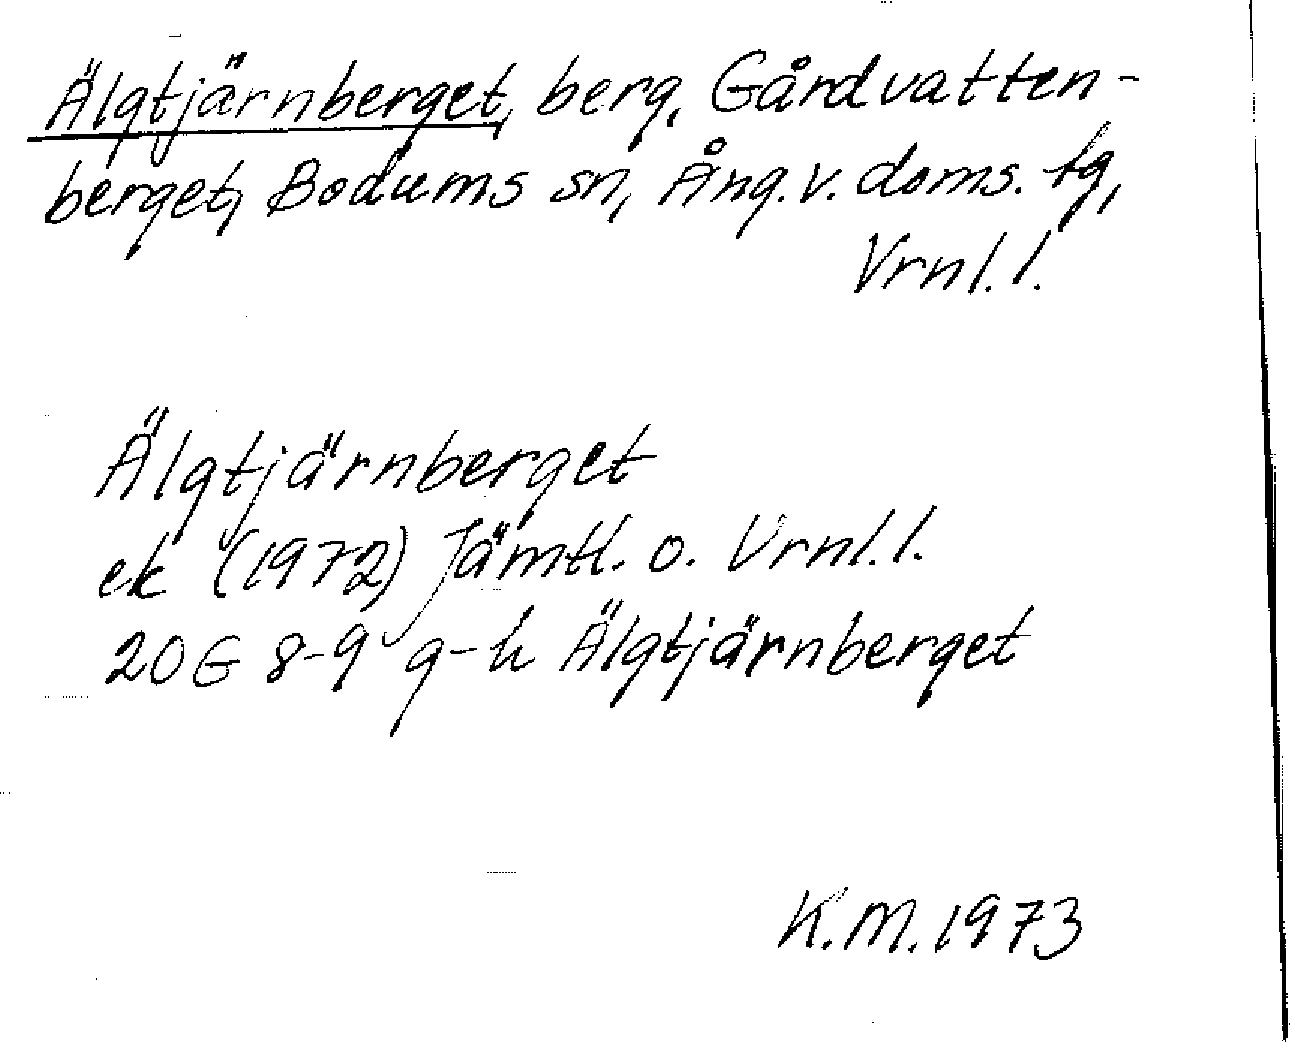 Älgtjärnberget, berg, Gårdvatten-
berget, Bodums sn, Ång. v. doms. tg,
Vrnl. l.
Älgtjärnberget
ek (1972) Jämtl. o. Vrnl. l.
20G 8-9 g-h Älgtjärnberget
K.M. 1973